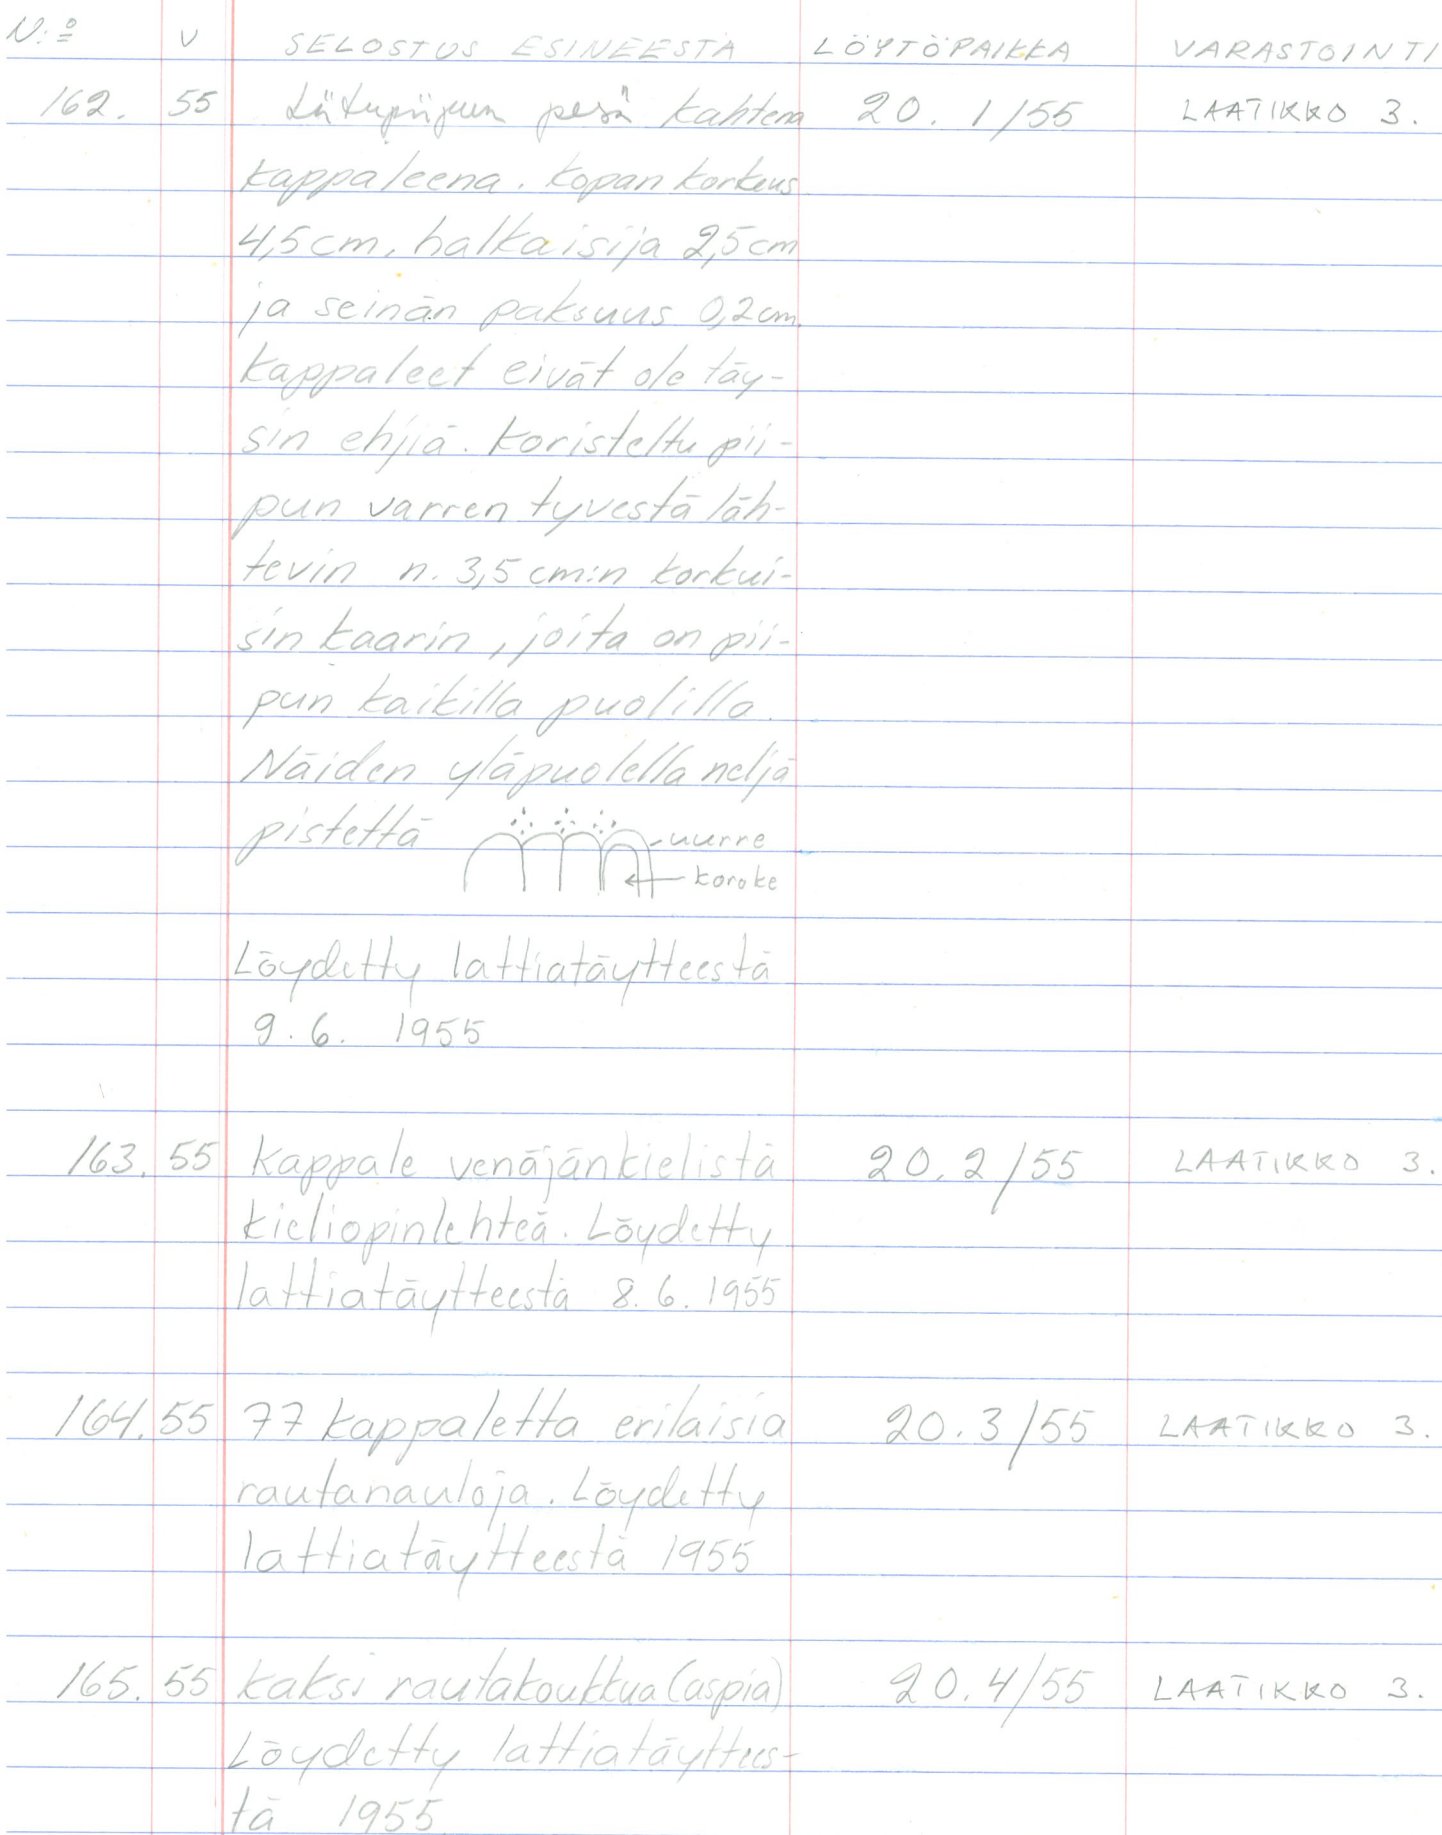 N:o V SELOSTUS ESINEESTÄ LÖYTÖPAIKKA VARASTOINTI
162. 55 Liitupiipun pesä kahtena 20. 1/55 LAATIKKO 3.
kappaleena. Kopan korkeus
4,5 cm, halkaisija 2,5 cm
ja seinän paksuus 0,2 cm.
Kappaleet eivät ole täy-
sin ehjiä. Koristeltu pii-
pun varren tyvestä läh-
tevin n. 3,5 cm:n korkui-
sin kaarin, joita on pii-
pun kaikilla puolilla.
Näiden yläpuolella neljä
pistettä uurre
koroke
Löydetty lattiatäytteestä
9. 6. 1955
163. 55 Kappale venäjänkielistä 20. 2/55 LAATIKKO 3.
kieliopinlehteä. Löydetty
lattiatäytteestä 8. 6. 1955
164. 55 77 kappaletta erilaisia 20. 3/55 LAATIKKO 3.
rautanauloja. Löydetty
lattiatäytteestä 1955
165. 55 Kaksi rautakoukkua (aspia) 20. 4/55 LAATIKKO 3.
Löydetty lattiatäyttees-
tä 1955